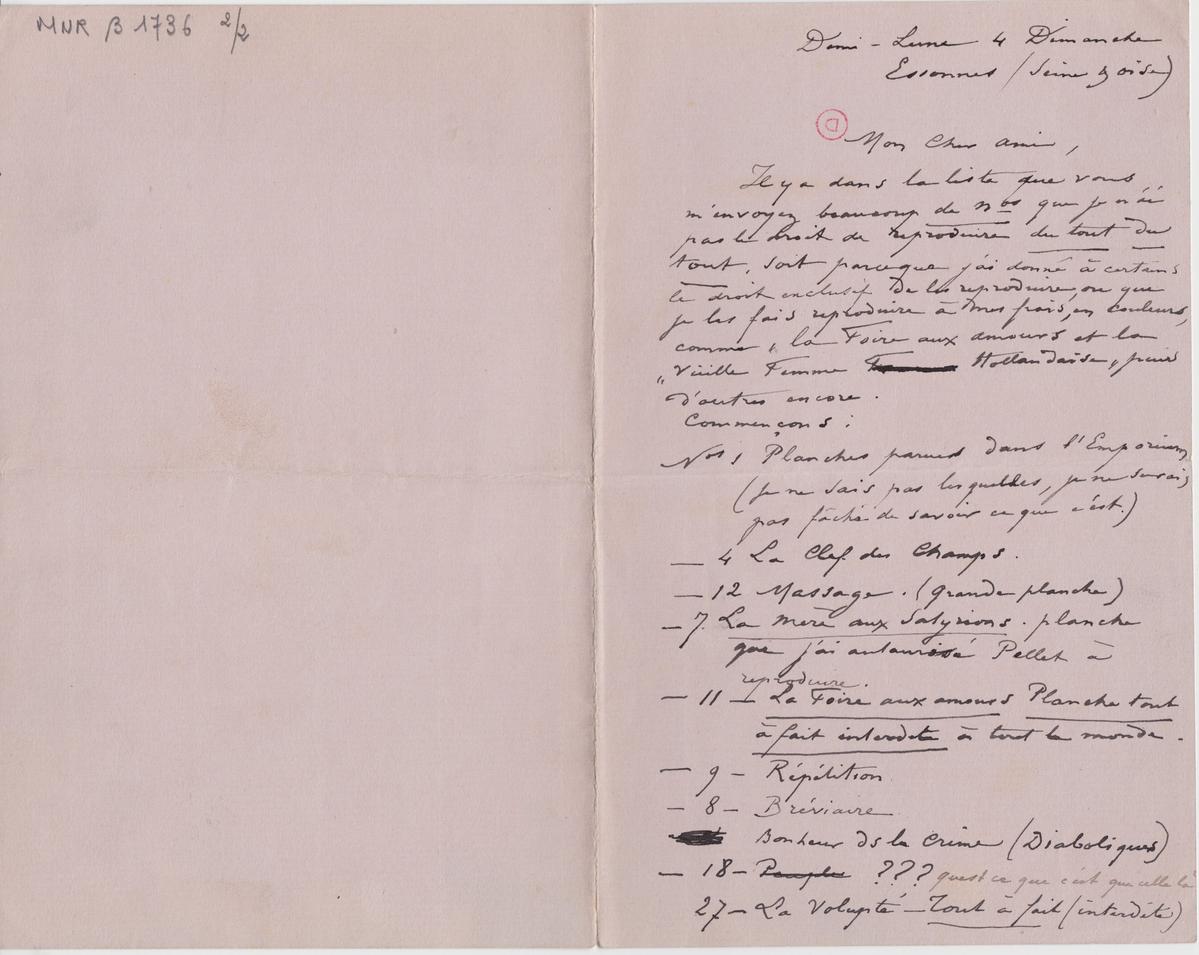 MNR β 1736 2/2
Demi-Lune 4 Dimanche
Essonnes (Seine & Oise)
D
Mon Cher ami,
Il y a dans la liste que vous
m'envoyez beaucoup de nos que je n'ai
pas le droit de reproduire du tout du
tout, soit parceque j'ai donné à certains
le droit exclusif de les reproduire, ou que
je les fais reproduire à mes frais, en couleurs,
comme „la Foire aux amours et la
„Vieille Femme Hollandaise„ puis
d'autres encore.
Commençons :
Nos 1 Planches parues dans l'Emporium
(je ne sais pas lesquelles, je ne serais
pas fâché de savoir ce que c'est.)
— 4 La Clef des Champs.
— 12 Massage. (grande planche)
— 7. La mère aux Satyrions. planche
que j'ai autorisé Pellet à
reproduire.
— 11 — La Foire aux amours Planche tout
à fait interdite à tout le monde.
— 9 — Répétition
— 8 — Bréviaire
Bonheur ds le Crime (Diaboliques)
— 18 — Peuple ??? quest ce que c'est que celle là
27 — La Volupté — Tout à fait (interdite)